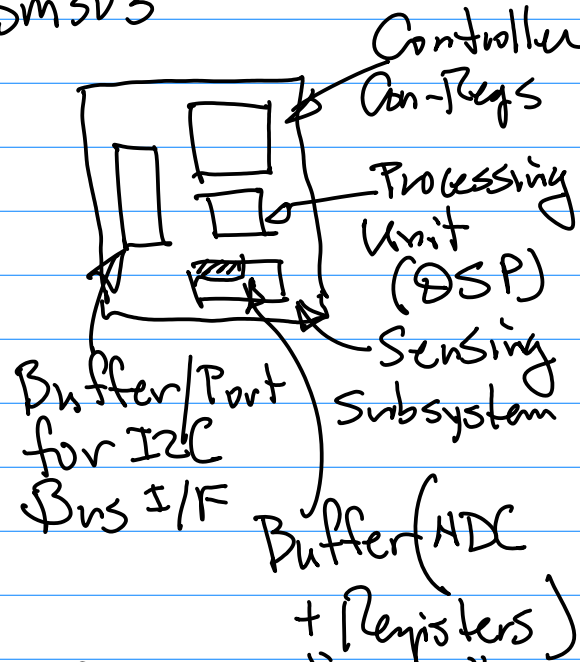 Controller
Con-Regs
Processing
Unit
(DSP)
Sensing
Subsystem
Buffer/Port
for I2C
Bus I/F
Buffer(
+ Registers)